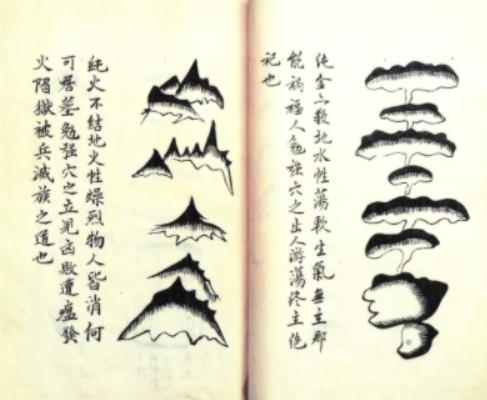 水性蕩軟生氣無主那
能福人勉强穴之出人游蕩終主絶
祀也
純火不結地火性燥烈物人皆消何
可居塋勉强穴之立見凶敗遭瘟
火陷獄被兵滅族之道也